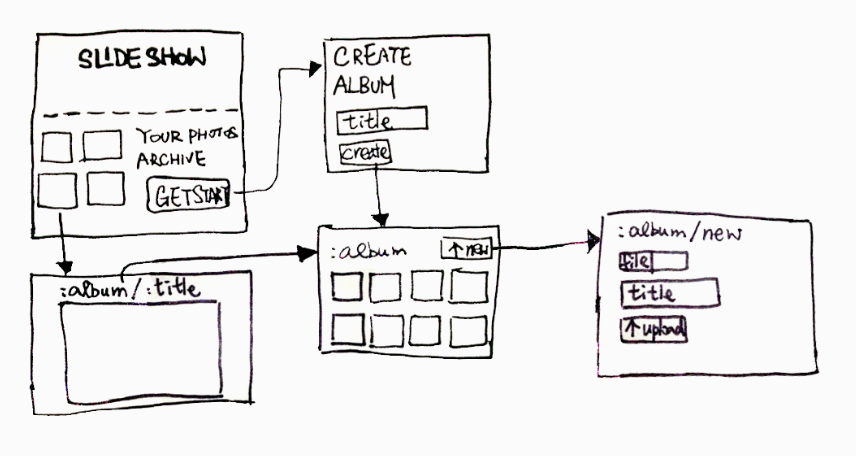 SLIDE SHOW
YOUR PHOTOS
ARCHIVE
GET START
CREATE
ALBUM
title
create
:album/:title
:album
↑ new
:album/new
file
title
↑ upload